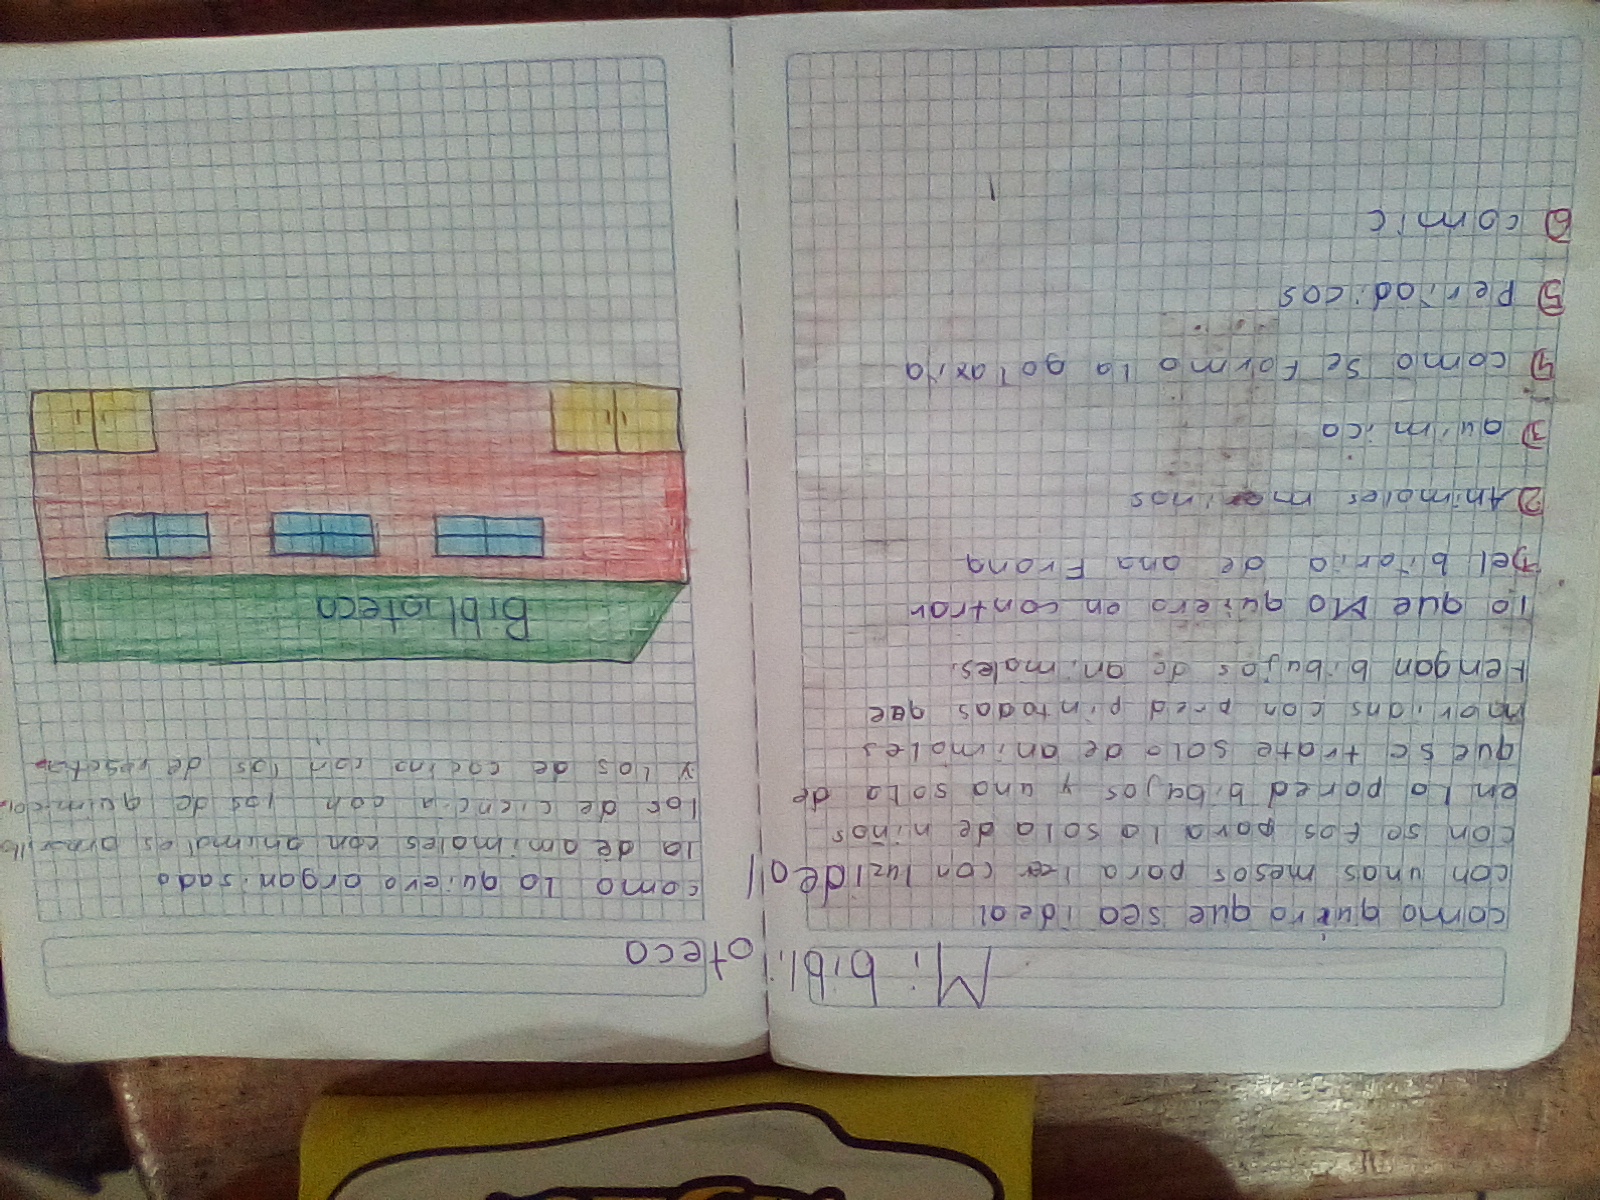 Mi biblioteca ideal
como quiero que sea ideal
con unas mesas para leer con luz
con sofos para la sala de niños
en la pared bibujos y una sala de
que se trate solo de animales
marians con pred pintadas que
tengan bibujos de animales.
lo que Mo quiero en contrar
1) el bitario de ana Frang
2) Animales marinos
3) quimica
4) como se Formo la galaxia
5) Periodicos
6) comic
como lo quiero organisado
la de amimales con animales,
los de ciencia con los de quimica
y los de cocina con los de
Biblioteca